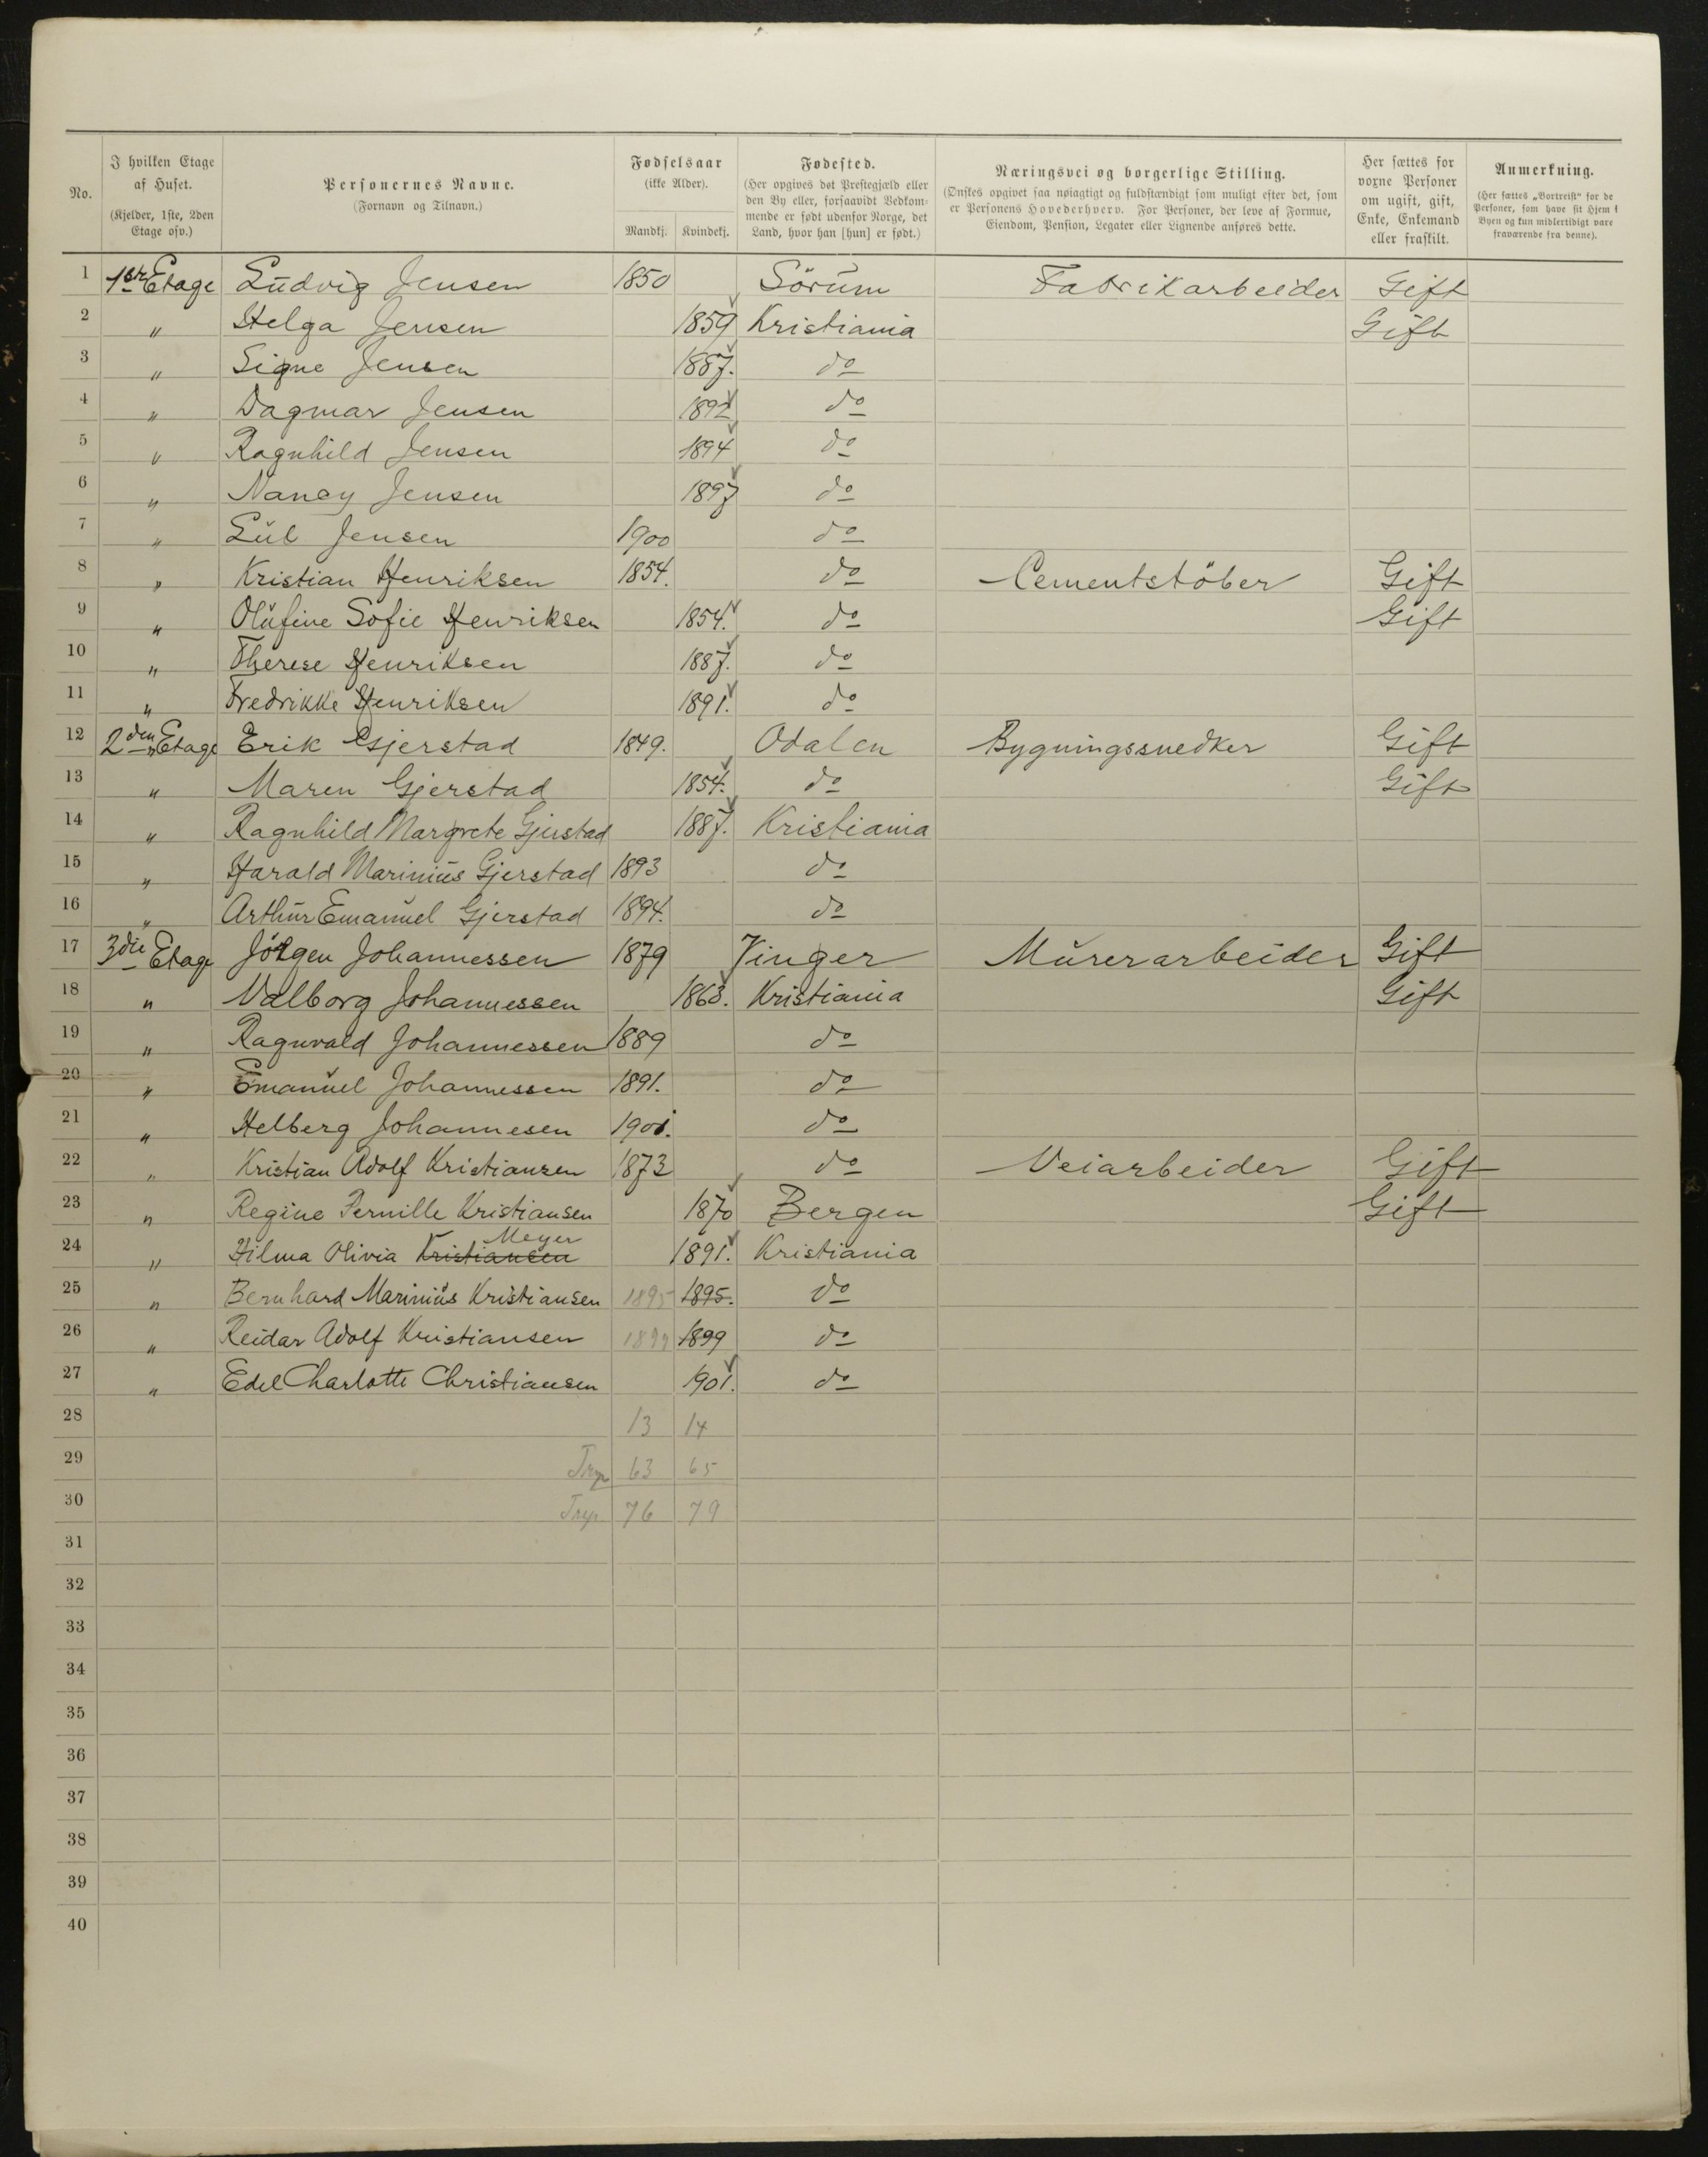 No. I hvilken Etage af Huset. (Kjelder, 1ste, 2den Etage osv.) Personernes Navne. (Fornavn og Tilnavn.) Fødselsaar (ikke Alder). Mandkj. Kvindekj. Fødested. (Her opgives det Prestegjæld eller den By eller, forsaavidt Vedkommende er født udenfor Norge, det Land, hvor han [hun] er født.) Næringsvei og borgerlige Stilling. (Ønskes opgivet saa nøiagtigt og fuldstændigt som muligt efter det, som er Personens Hovederhverv. For Personer, der leve af Formue, Eiendom, Pension, Legater eller Lignende anføres dette. Her sættes for voxne Personer om ugift, gift, Enke, Enkemand eller fraskilt. Anmerkning. (Her sættes „Bortreist“ for de Personer, som have sit Hjem i Byen og kun midlertidigt vare fraværende fra denne).
1 1ste Etage Ludvig Jensen 1850 Sörum Fabrikarbeider Gift
2 " Helga Jensen 1859 Kristiania Gift
3 " Signe Jensen 1887. do
4 " Dagmar Jensen 1892 do
5 " Ragnhild Jensen 1894 do
6 " Nancy Jensen 1897 do
7 " Lul Jensen 1900 do
8 " Kristian Henriksen 1854. do Cementstöber Gift
9 " Olufine Sofie Henriksen 1854. do Gift
10 " Therese Henriksen 1887. do
11 " Fredrikke Henriksen 1891. do
12 2den Etage Erik Gjerstad 1849. Odalen Bygningssnedker Gift
13 " Maren Gjerstad 1854. do Gift
14 " Ragnhild Margrete Gjerstad 1887. Kristiania
15 " Harald Marinius Gjerstad 1893 do
16 " Arthur Emanuel Gjerstad 1894. do
17 3die Etage Jörgen Johannessen 1879 Vinger Murerarbeider Gift
18 " Valborg Johannessen 1863. Kristiania Gift
19 " Ragnvald Johannessen 1889 do
20 " Emanuel Johannessen 1891. do
21 " Helberg Johannesen 1901. do
22 " Kristian Adolf Kristiansen 1873 do Veiarbeider Gift
23 " Regine Pernille Kristiansen 1870 Bergen Gift
24 " Hilma Olivia Kristiansen Meyer 1891. Kristiania
25 " Bernhard Marinius Kristiansen 1895 1895. do
26 " Reidar Adolf Kristiansen 1899 1899 do
27 " Edel Charlotte Christiansen 1901. do
28 13 14
29 63 65
30 76 79
31
32
33
34
35
36
37
38
39
40